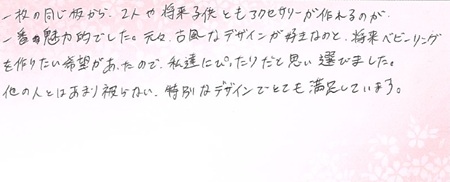 一枚の同じ板から、2人や将来子供ともアクセサリーが作れるのが
一番魅力的でした。元々、古風なデザインが好きなのと、将来ベビーリング
を作りたい希望があったので、私達にぴったりだと思い選びました。
他の人とはあまり被らない、特別なデザインでとても満足しています。